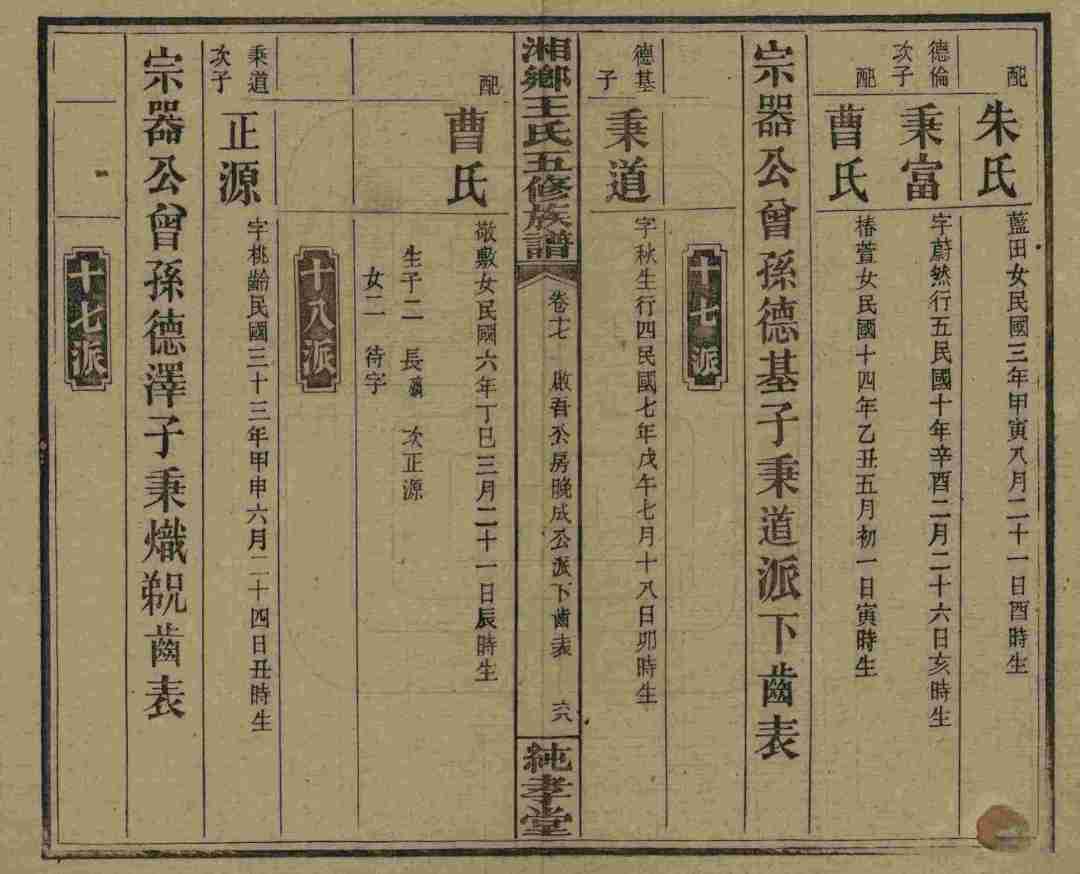 配
朱氏
藍田女民國三年甲寅八月二十一日酉時生
德倫次子
秉富
字蔚然行五民國十年辛酉二月二十六日亥時生
配
曹氏
椿萱女民國十四年乙丑五月初一日寅時生
宗器公曾孫德基子秉道派下齒表
十七派
德基子
秉道
字秋生行四民國七年戊午七月十八日卯時生
湘鄉王氏五修族譜
卷十七 啟吾公房晚成公派下齒表 六八
純孝堂
配
曹氏
敬敷女民國六年丁巳三月二十一日辰時生
生子二 長 次正源
女二 待字
十八派
秉道次子
正源
字桃齡民國三十三年甲申六月二十四日丑時生
宗器公曾孫德澤子秉熾䞉齒表
十七派